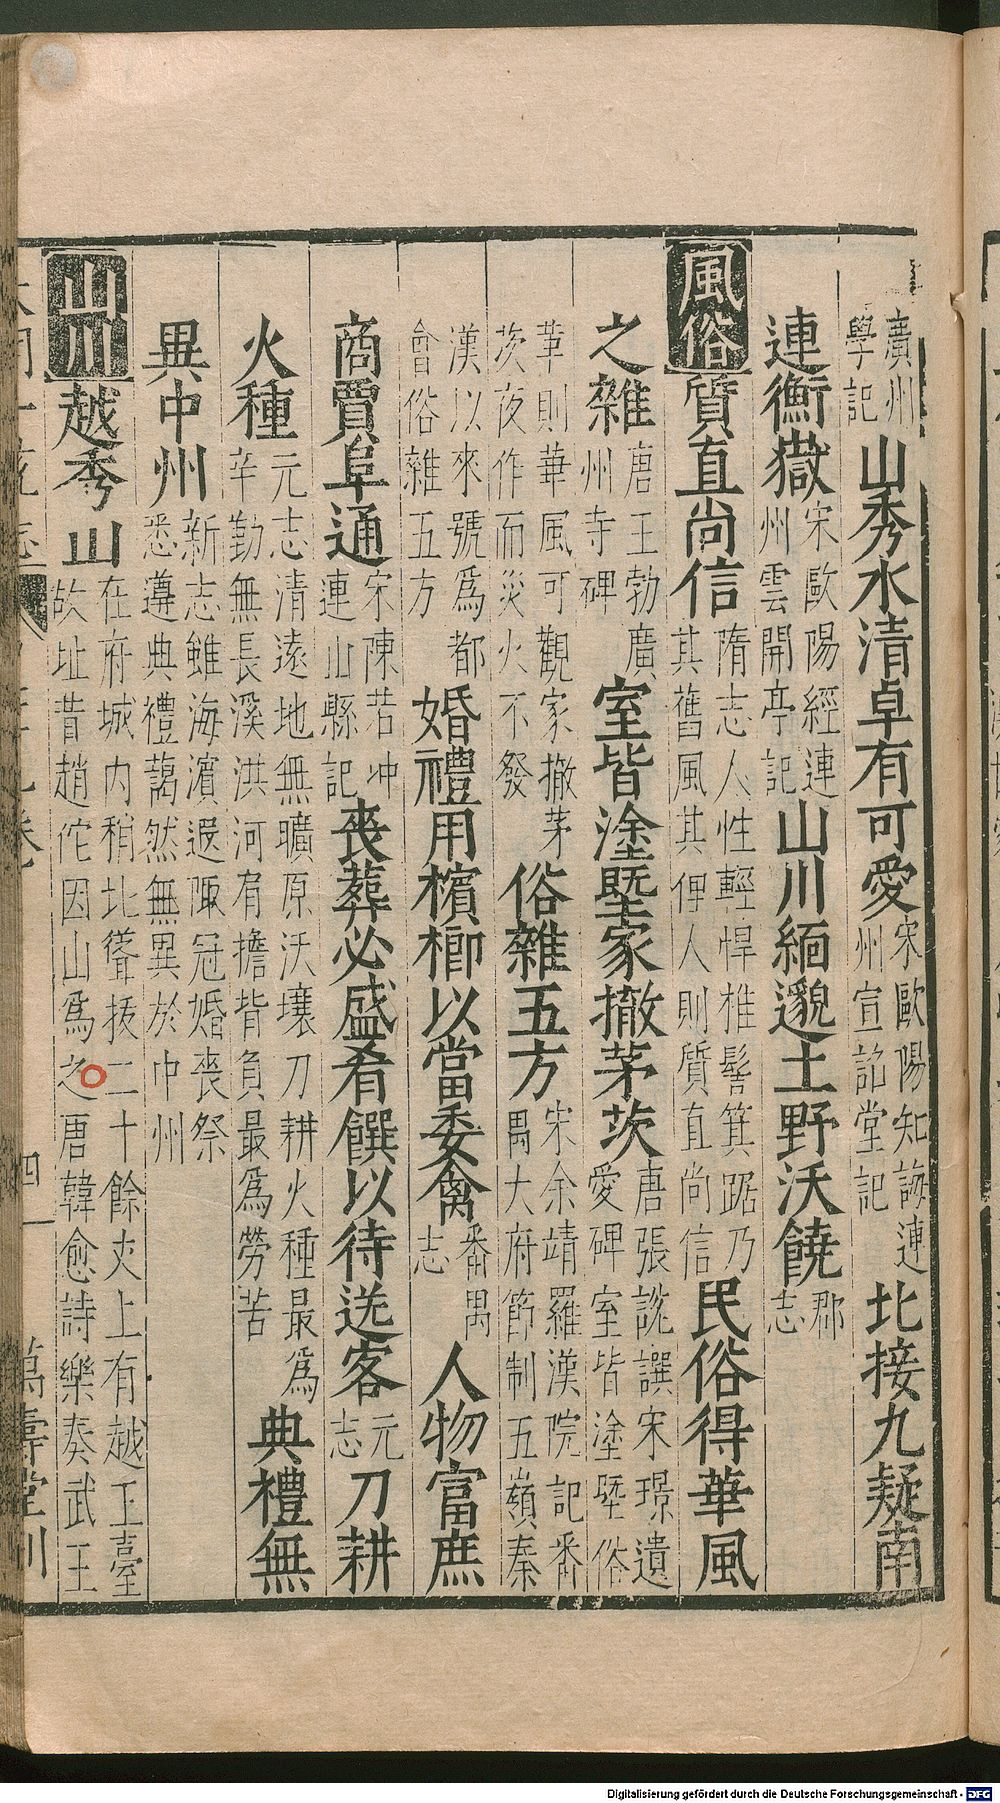 廣州學記山秀水清卓有可愛宋歐陽知誨連州宣詔堂記北接九疑南
連衡嶽宋歐陽經連州雲開亭記山川緬邈土野沃饒郡志
風俗質直尚信隋志人性輕悍椎髻箕踞乃其舊風其俚人則質直尚信民俗得華風
之雜唐王勃廣州寺碑室皆塗墍家撤茅茨唐張說譔宋璟遺愛碑室皆塗墍俗
革則華風可觀家撤茅茨夜作而災火不發俗雜五方宋余靖羅漢院記番禺大府節制五嶺秦
漢以來號為都會俗雜五方婚禮用檳榔以當委禽番禺志人物富庶
商賈阜通宋陳若冲連山縣記喪葬必盛肴饌以待送客元志刀耕
火種元志清遠地無曠原沃壤刀耕火種最為辛勤無長溪洪河有擔背負最為勞苦典禮無
異中州新志雖海濱遐陬冠婚喪祭悉遵典禮藹然無異於中州
山川越秀山在府城內稍北聳拔二十餘丈上有越王臺故址昔趙佗因山為之唐韓愈詩樂奏武王
四
萬壽堂刊
Digitalisierung gefördert durch die Deutsche Forschungsgemeinschaft - DFG